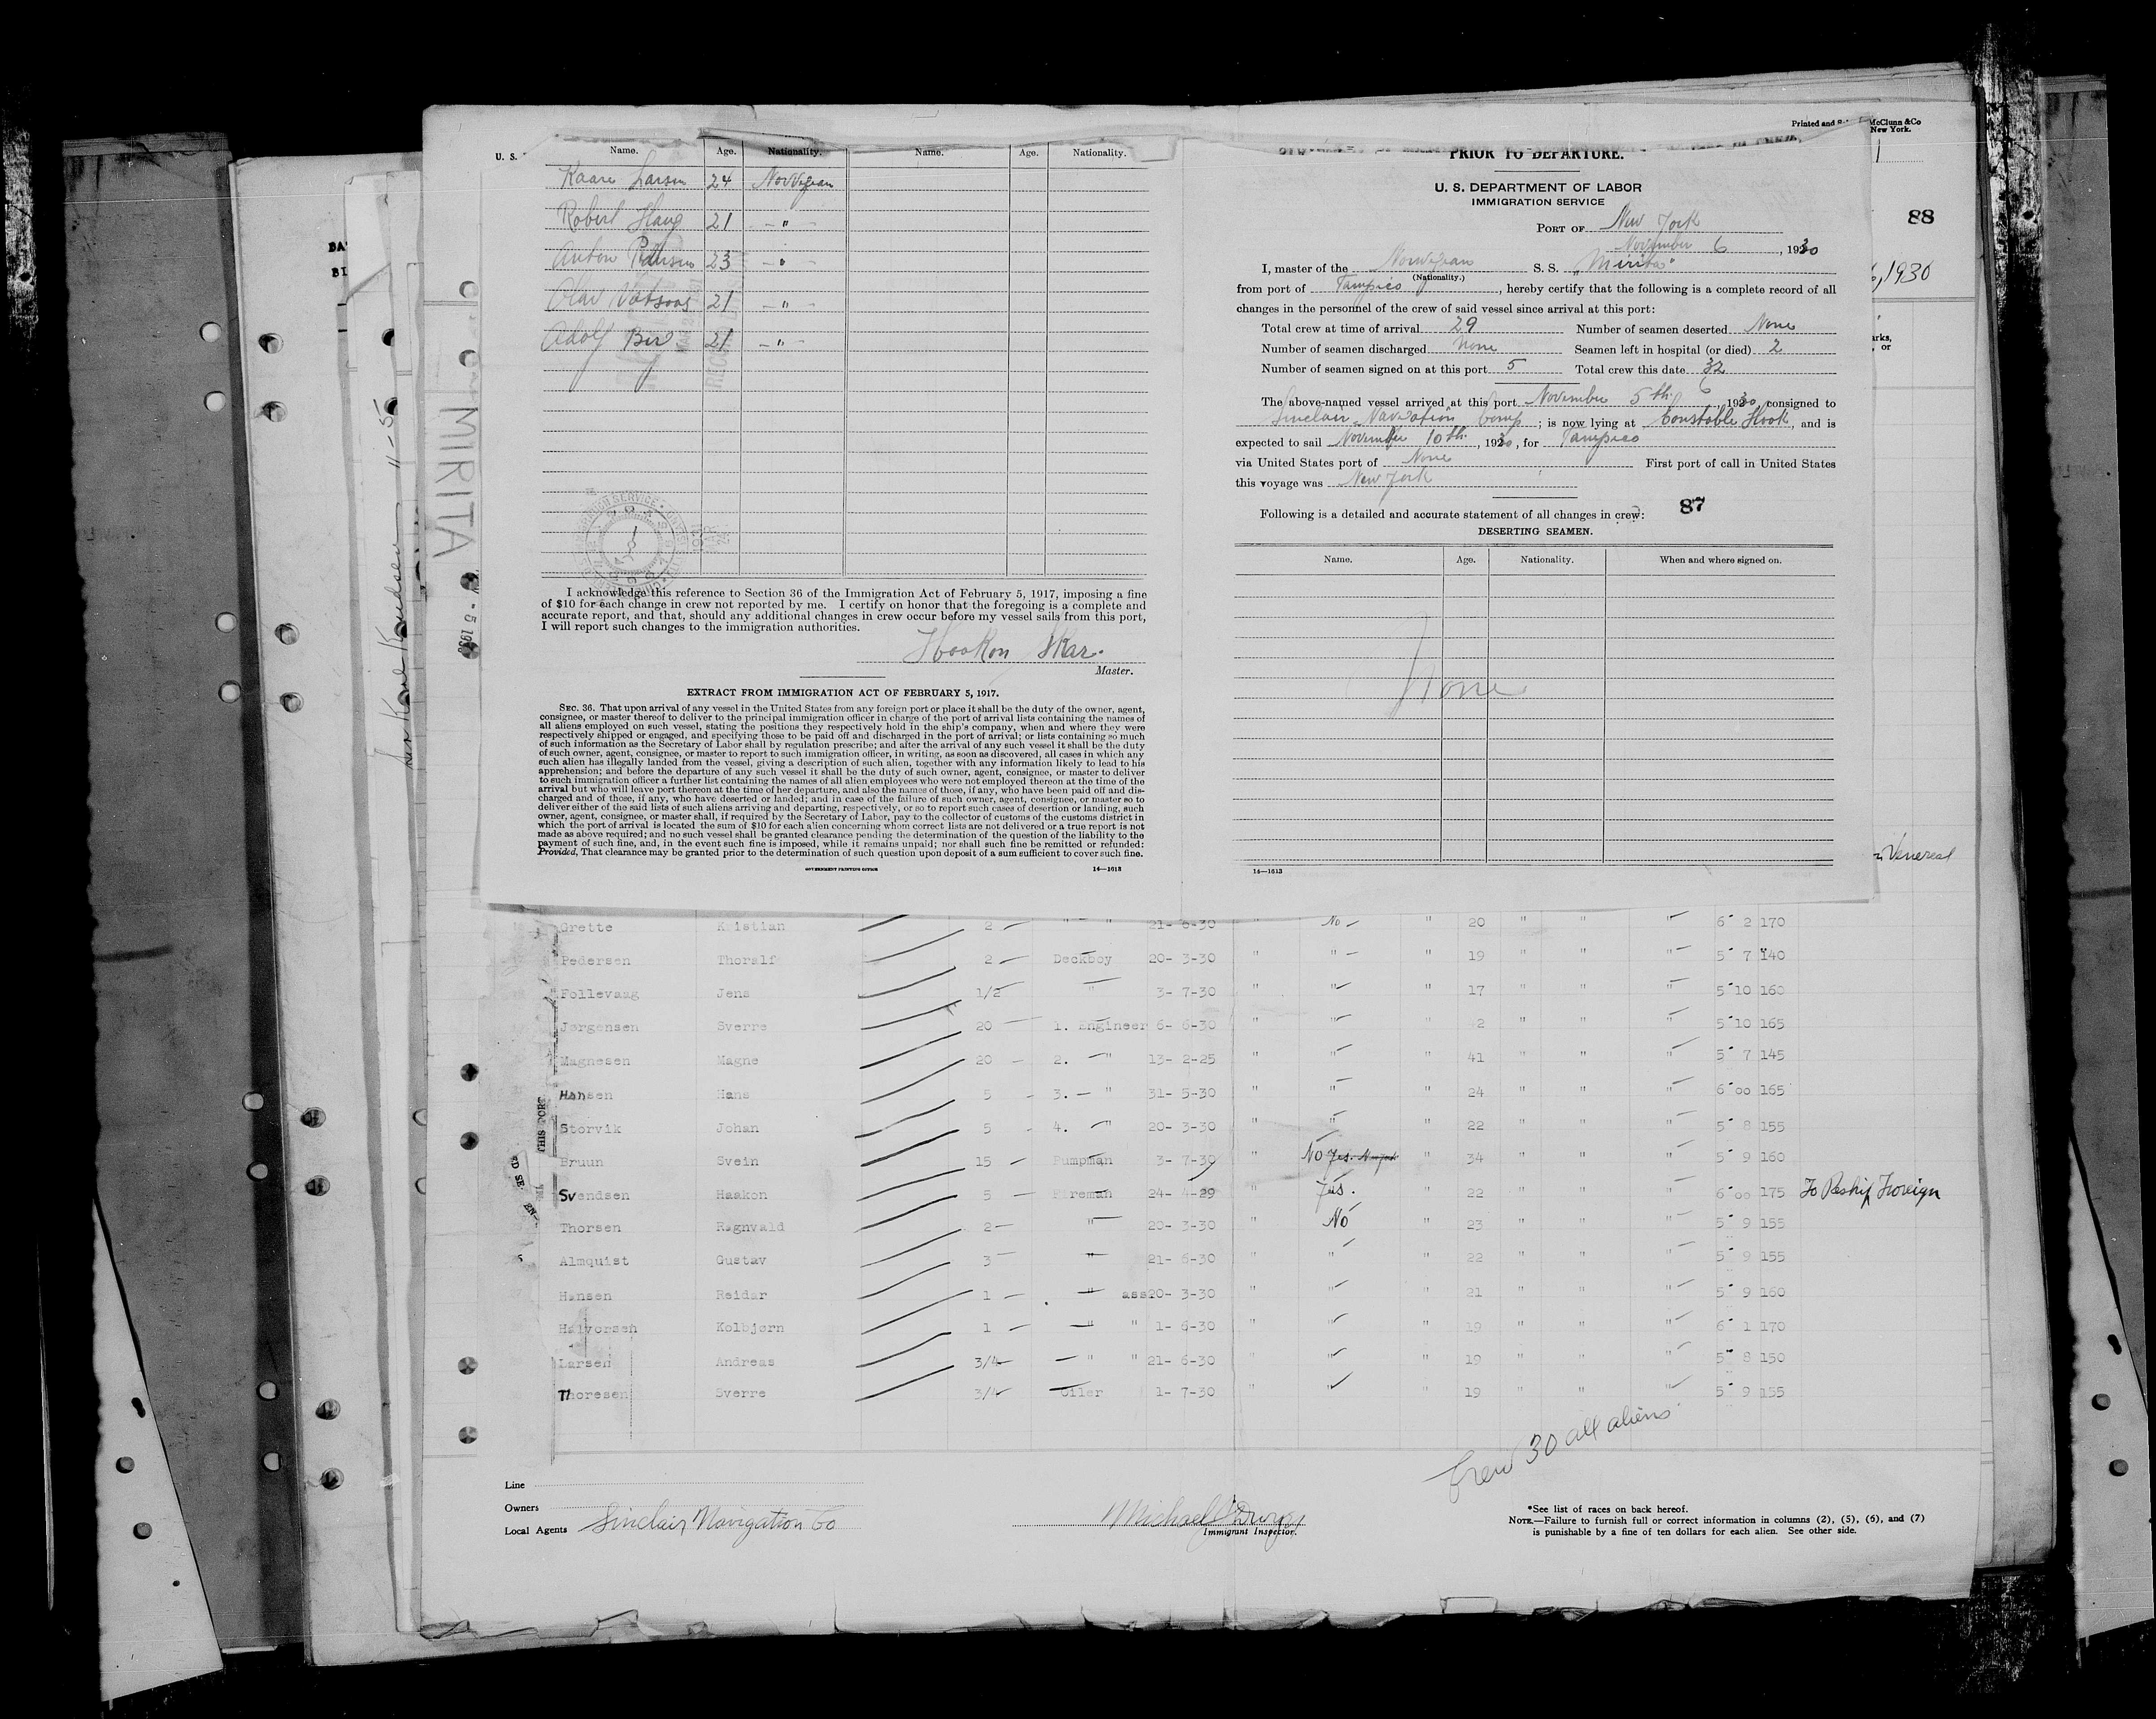 Printed and
McClunn & Co
New York.
U. S.
Name. Age. Nationality. Name. Age. Nationality.
Kaare Larsen 24 Norwegian
Robert Haug 21 — " —
Anton 23 — " —
Olav 21 — " —
Adolf 21 — " —
I acknowledge this reference to Section 36 of the Immigration Act of February 5, 1917, imposing a fine
of $10 for each change in crew not reported by me. I certify on honor that the foregoing is a complete and
accurate report, and that, should any additional changes in crew occur before my vessel sails from this port,
I will report such changes to the immigration authorities.
Haakon Skar.
Master.
EXTRACT FROM IMMIGRATION ACT OF FEBRUARY 5, 1917.
SEC. 36. That upon arrival of any vessel in the United States from any foreign port or place it shall be the duty of the owner, agent,
consignee, or master thereof to deliver to the principal immigration officer in charge of the port of arrival lists containing the names of
all aliens employed on such vessel, stating the positions they respectively hold in the ship's company, when and where they were
respectively shipped or engaged, and specifying those to be paid off and discharged in the port of arrival; or lists containing so much
of such information as the Secretary of Labor shall by regulation prescribe; and after the arrival of any such vessel it shall be the duty
of such owner, agent, consignee, or master to report to such immigration officer, in writing, as soon as discovered, all cases in which any
such alien has illegally landed from the vessel, giving a description of such alien, together with any information likely to lead to his
apprehension; and before the departure of any such vessel it shall be the duty of such owner, agent, consignee, or master to deliver
to such immigration officer a further list containing the names of all alien employees who were not employed thereon at the time of the
arrival but who will leave port thereon at the time of her departure, and also the names of those, if any, who have been paid off and dis-
charged and of those, if any, who have deserted or landed; and in case of the failure of such owner, agent, consignee, or master so to
deliver either of the said lists of such aliens arriving and departing, respectively, or so to report such cases of desertion or landing, such
owner, agent, consignee, or master shall, if required by the Secretary of Labor, pay to the collector of customs of the customs district in
which the port of arrival is located the sum of $10 for each alien concerning whom correct lists are not delivered or a true report is not
made as above required; and no such vessel shall be granted clearance pending the determination of the question of the liability to the
payment of such fine, and, in the event such fine is imposed, while it remains unpaid; nor shall such fine be remitted or refunded:
Provided, That clearance may be granted prior to the determination of such question upon deposit of a sum sufficient to cover such fine.
GOVERNMENT PRINTING OFFICE 14—1613
PRIOR TO DEPARTURE.
U. S. DEPARTMENT OF LABOR
IMMIGRATION SERVICE
PORT OF New York
November 6, 1930
I, master of the Norwegian S. S. "Mirita"
(Nationality.)
from port of Tampico, hereby certify that the following is a complete record of all
changes in the personnel of the crew of said vessel since arrival at this port:
Total crew at time of arrival 29 Number of seamen deserted None
Number of seamen discharged None Seamen left in hospital (or died) 2
Number of seamen signed on at this port 5 Total crew this date 32
The above-named vessel arrived at this port November 5th 6, 1930, consigned to
Sinclair Navigation Comp; is now lying at Constable Hook, and is
expected to sail November 10th, 1930, for Tampico
via United States port of None First port of call in United States
this voyage was New York
87
Following is a detailed and accurate statement of all changes in crew:
DESERTING SEAMEN.
Name. Age. Nationality. When and where signed on.
None
14—1613
88
6, 1930
Venereal
MIRITA
- 5 1930
11-5
Grette Kristian 2 — " " 21- 6-30 " No " 20 " " " 6 2 170
Pedersen Thoralf 2 — Deckboy 20- 3-30 " " " 19 " " " 5 7 140
Follevaag Jens 1/2 " 3- 7-30 " " " 17 " " " 5 10 160
Jørgensen Sverre 20 — 1. Engineer 6- 6-30 " " " 42 " " " 5 10 165
Magnesen Magne 20 — 2. — " 13- 2-25 " " " 41 " " " 5 7 145
Hansen Hans 5 — 3. — " 31- 5-30 " " " 24 " " " 6 00 165
Storvik Johan 5 — 4. — " 20- 3-30 " " " 22 " " " 5 8 155
Bruun Svein 15 — Pumpman 3- 7-30 " No Yes. " 34 " " " 5 9 160
Svendsen Haakon 5 — Fireman 24- 4-29 " Yes. " 22 " " " 6 00 175 To Reship Foreign
Thorsen Ragnvald 2 — " 20- 3-30 " No " 23 " " " 5 9 155
Almquist Gustav 3 — " 21- 6-30 " " " 22 " " " 5 9 155
Hansen Reidar 1 — " ass 20- 3-30 " " " 21 " " " 5 9 160
Halvorsen Kolbjørn 1 — " " 1- 6-30 " " " 19 " " " 6 1 170
Larsen Andreas 3/4 — " " 21- 6-30 " " " 19 " " " 5 8 150
Thoresen Sverre 3/4 Oiler 1- 7-30 " " " 19 " " " 5 9 155
THIS PORT
Crew 30 all aliens
Line
Owners
Local Agents Sinclair Navigation Co
Immigrant Inspector.
*See list of races on back hereof.
NOTE.—Failure to furnish full or correct information in columns (2), (5), (6), and (7)
is punishable by a fine of ten dollars for each alien. See other side.